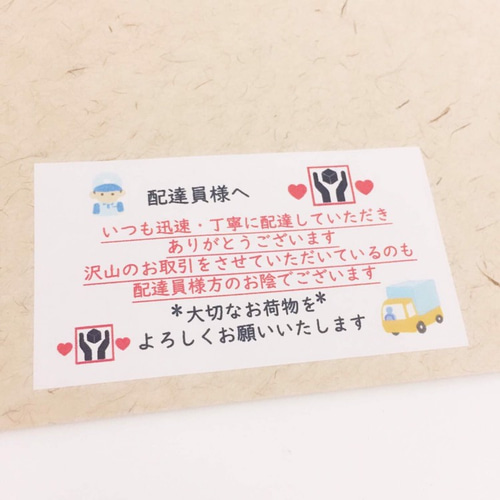 配達員様へ
いつも迅速・丁寧に配達していただき
ありがとうございます
沢山のお取引をさせていただいているのも
配達員様方のお陰でございます
*大切なお荷物を*
よろしくお願いいたします